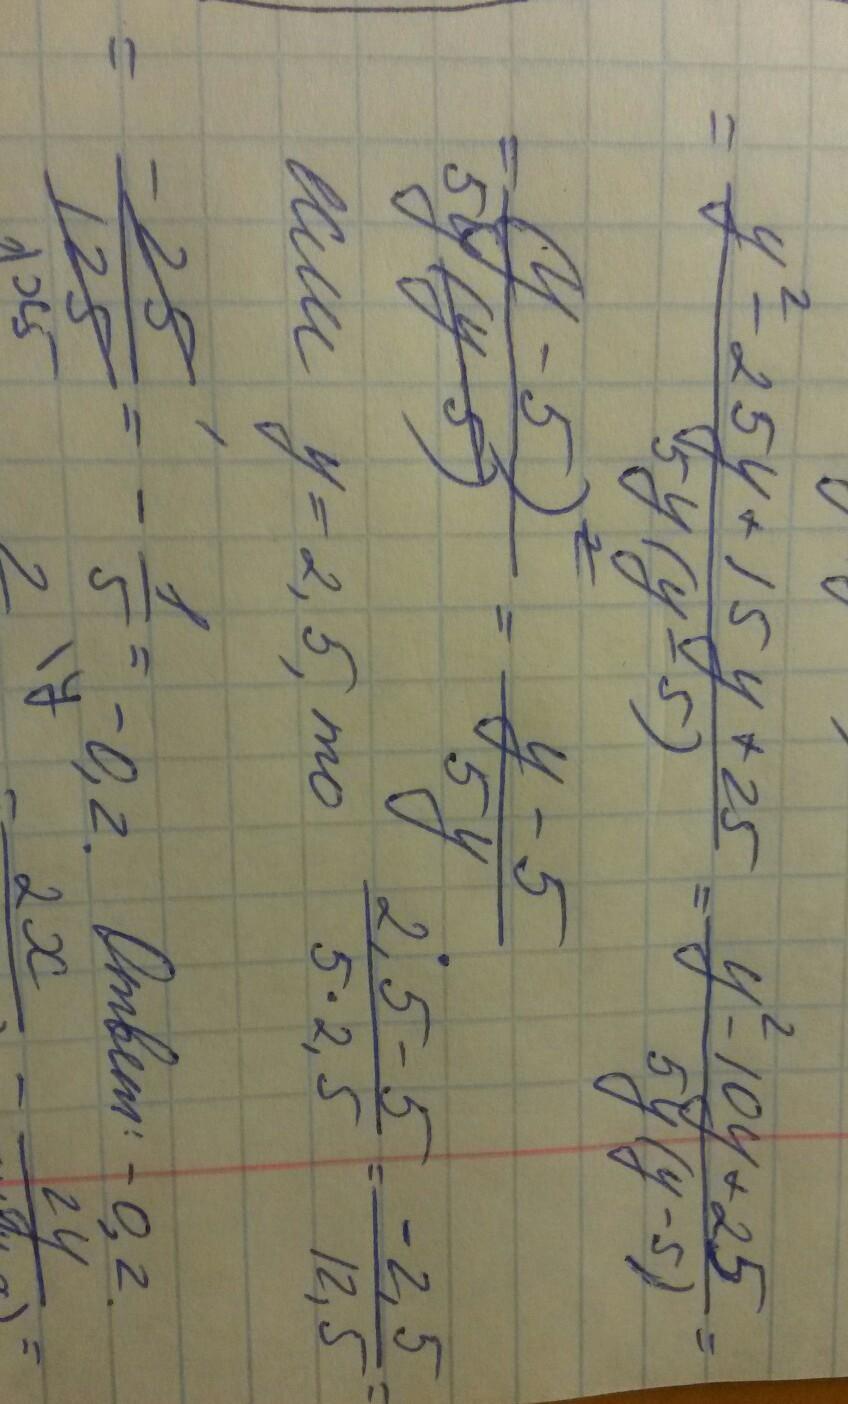 = y² - 25y + 15y + 25 / 5y(y - 5) = y² - 10y + 25 / 5y(y - 5) =
= (y - 5)² / 5y(y - 5) = y - 5 / 5y
Если y = 2,5, то 2,5 - 5 / 5 · 2,5 = -2,5 / 12,5 =
= -25 / 125 = - 1 / 5 = -0,2. Ответ: -0,2.
2 \y 2x - 24